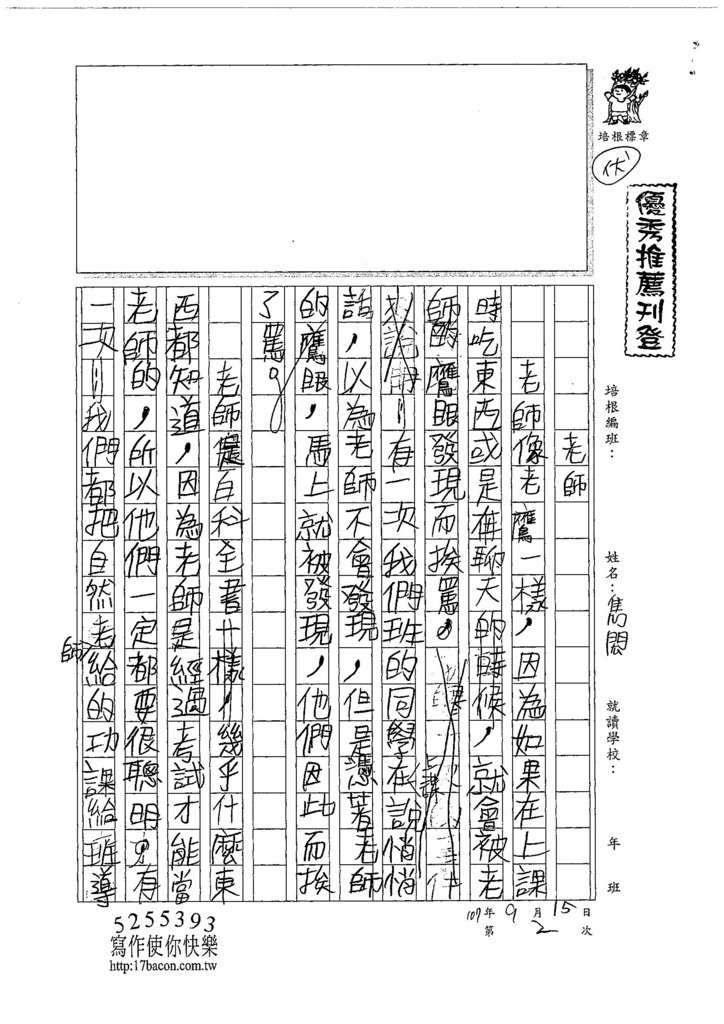 培根標章
優秀推薦刊登
培根編班：
姓名：雋閎
就讀學校：
年
班
107年9月15日
第2次
老師
老師像老鷹一樣，因為如果在上課
時吃東西或是在聊天的時候，就會被老
師的鷹眼發現而挨罵。
有一次我們班的同學在上課說悄悄
話，以為老師不會發現，但是憑著老師
的鷹眼，馬上就被發現，他們因此而挨
了罵。
老師像百科全書一樣，幾乎什麼東
西都知道，因為老師是經過考試才能當
老師的，所以他們一定都要很聰明，有
一次，我們都把自然老師給的功課給班導
5255393
寫作使你快樂
http:17bacon.com.tw